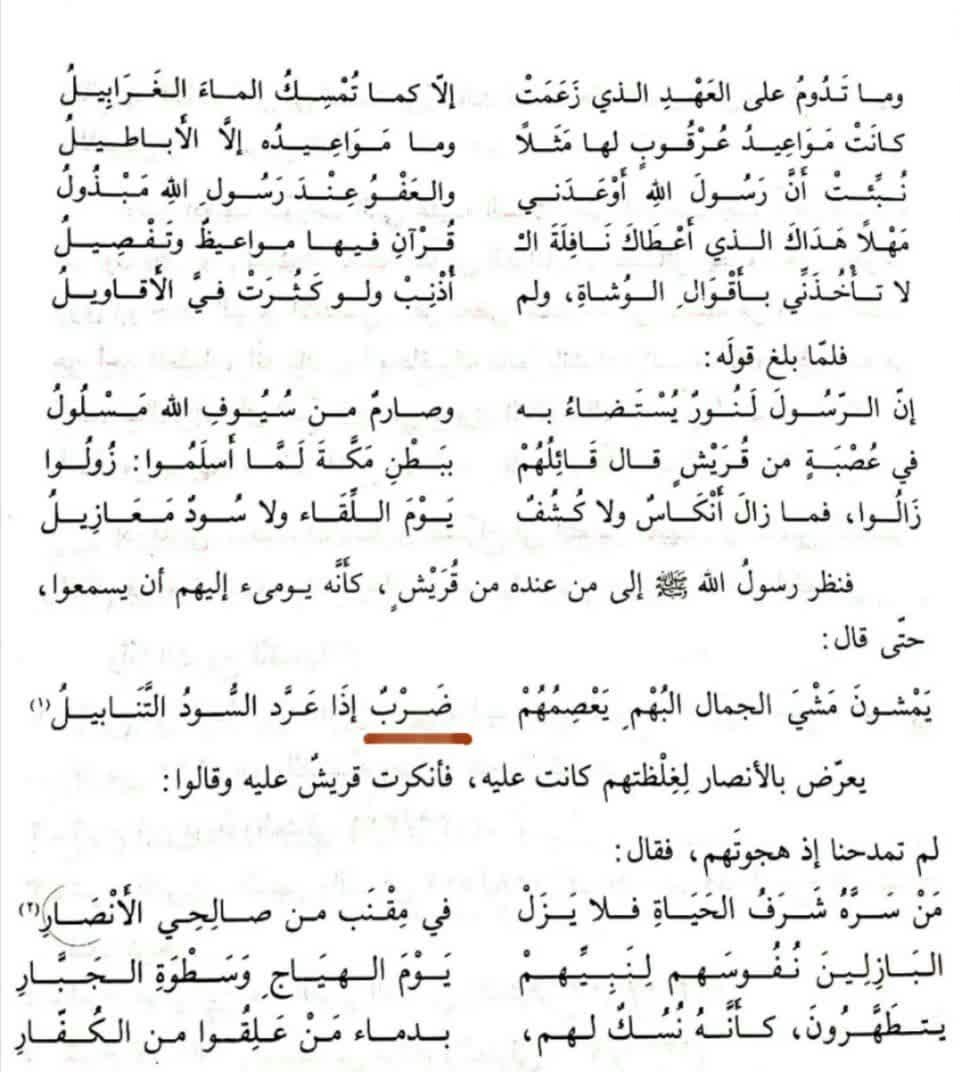 وما تَدُومُ على العَهْدِ الذي زَعَمَتْ إلّا كما تُمْسِكُ الماءَ الغَرَابِيلُ
كانَتْ مَوَاعِيدُ عُرْقُوبٍ لها مَثَلًا وما مَوَاعِيدُه إلَّا الأَباطيلُ
نُبِّئتْ أَنَّ رَسُولَ اللهِ أَوْعَدَني والعَفْوُ عِنْدَ رَسُولِ اللهِ مَبْذُولُ
مَهْلًا هَدَاكَ الذي أَعْطَاكَ نَافِلَةَ الـ قُرْآنِ فيها مواعيظٌ وتَفْصِيلُ
لا تأْخُذَنِّي بأَقْوَالِ الوُشاةِ، ولم أُذْنِبْ ولو كَثُرَتْ فيَّ الأَقاويلُ
فلمّا بلغ قولَه:
إنّ الرَسُولَ لَنُورٌ يُسْتَضاءُ به وصارمٌ من سُيُوفِ الله مَسْلُولُ
في عُصْبَةٍ من قُرَيْشٍ قال قَائِلُهُمْ ببَطْنِ مَكَّةَ لَمَّا أَسلَمُوا: زُولُوا
زَالُوا، فما زالَ أَنْكاسٌ ولا كُشُفٌ يَوْمَ اللِّقَاء ولا سُودٌ مَعَازِيلُ
فنظر رسولُ الله ﷺ إلى من عنده من قُرَيْشٍ، كأَنَّه يومىء إليهم أن يسمعوا،
حتّى قال:
يَمْشونَ مَشْيَ الجمال البُهْمِ يَعْصِمُهُمْ ضَرْبٌ إذَا عَرَّد السُّودُ التَّنَابيلُ(١)
يعرّض بالأنصار لِغِلْظتهم كانت عليه، فأنكرت قريشٌ عليه وقالوا:
لم تمدحنا إذ هجوتَهم، فقال:
مَنْ سَرَّهُ شَرَفُ الحَيَاةِ فلا يَزَلْ في مِقْنَب من صالِحِي الأَنْصَارِ(٢)
البَازِلِينَ نُفُوسَهم لِنَبِيِّهمْ يَوْمَ الهيَاجِ وَسَطْوَةِ الجبَّارِ
يتطَهَّرُونَ، كأَنَّهُ نُسُكٌ لهم، بدماء مَنْ عَلِقُوا من الكُفّارِ